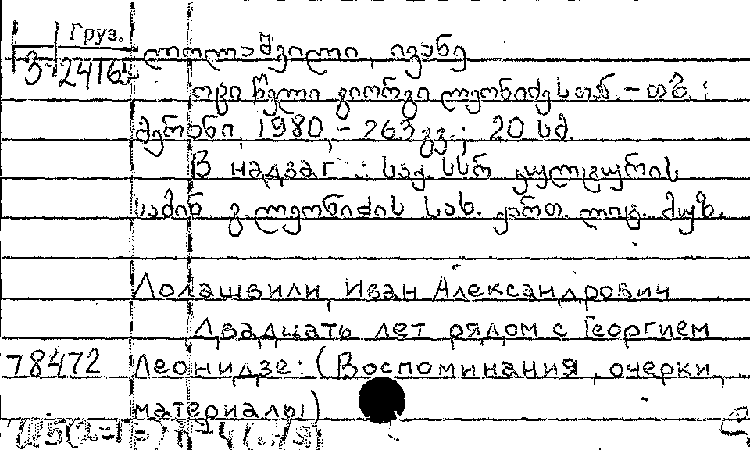 Груз.
3-24164 ლოლაშვილი, ივანე
ოცი წელი გიორგი ლეონიძესთან. – თბ. :
მერანი, 1980, – 263 გვ.; 20 სმ.
В надзаг. : საქ. სსრ კულტურის
სამინ გ. ლეონიძის სახ. ქართ. ლიტ. მუზ.
Лолашвили, Иван Александрович
Двадцать лет рядом с Георгием
78472 Леонидзе. (Воспоминания, очерки,
материалы)